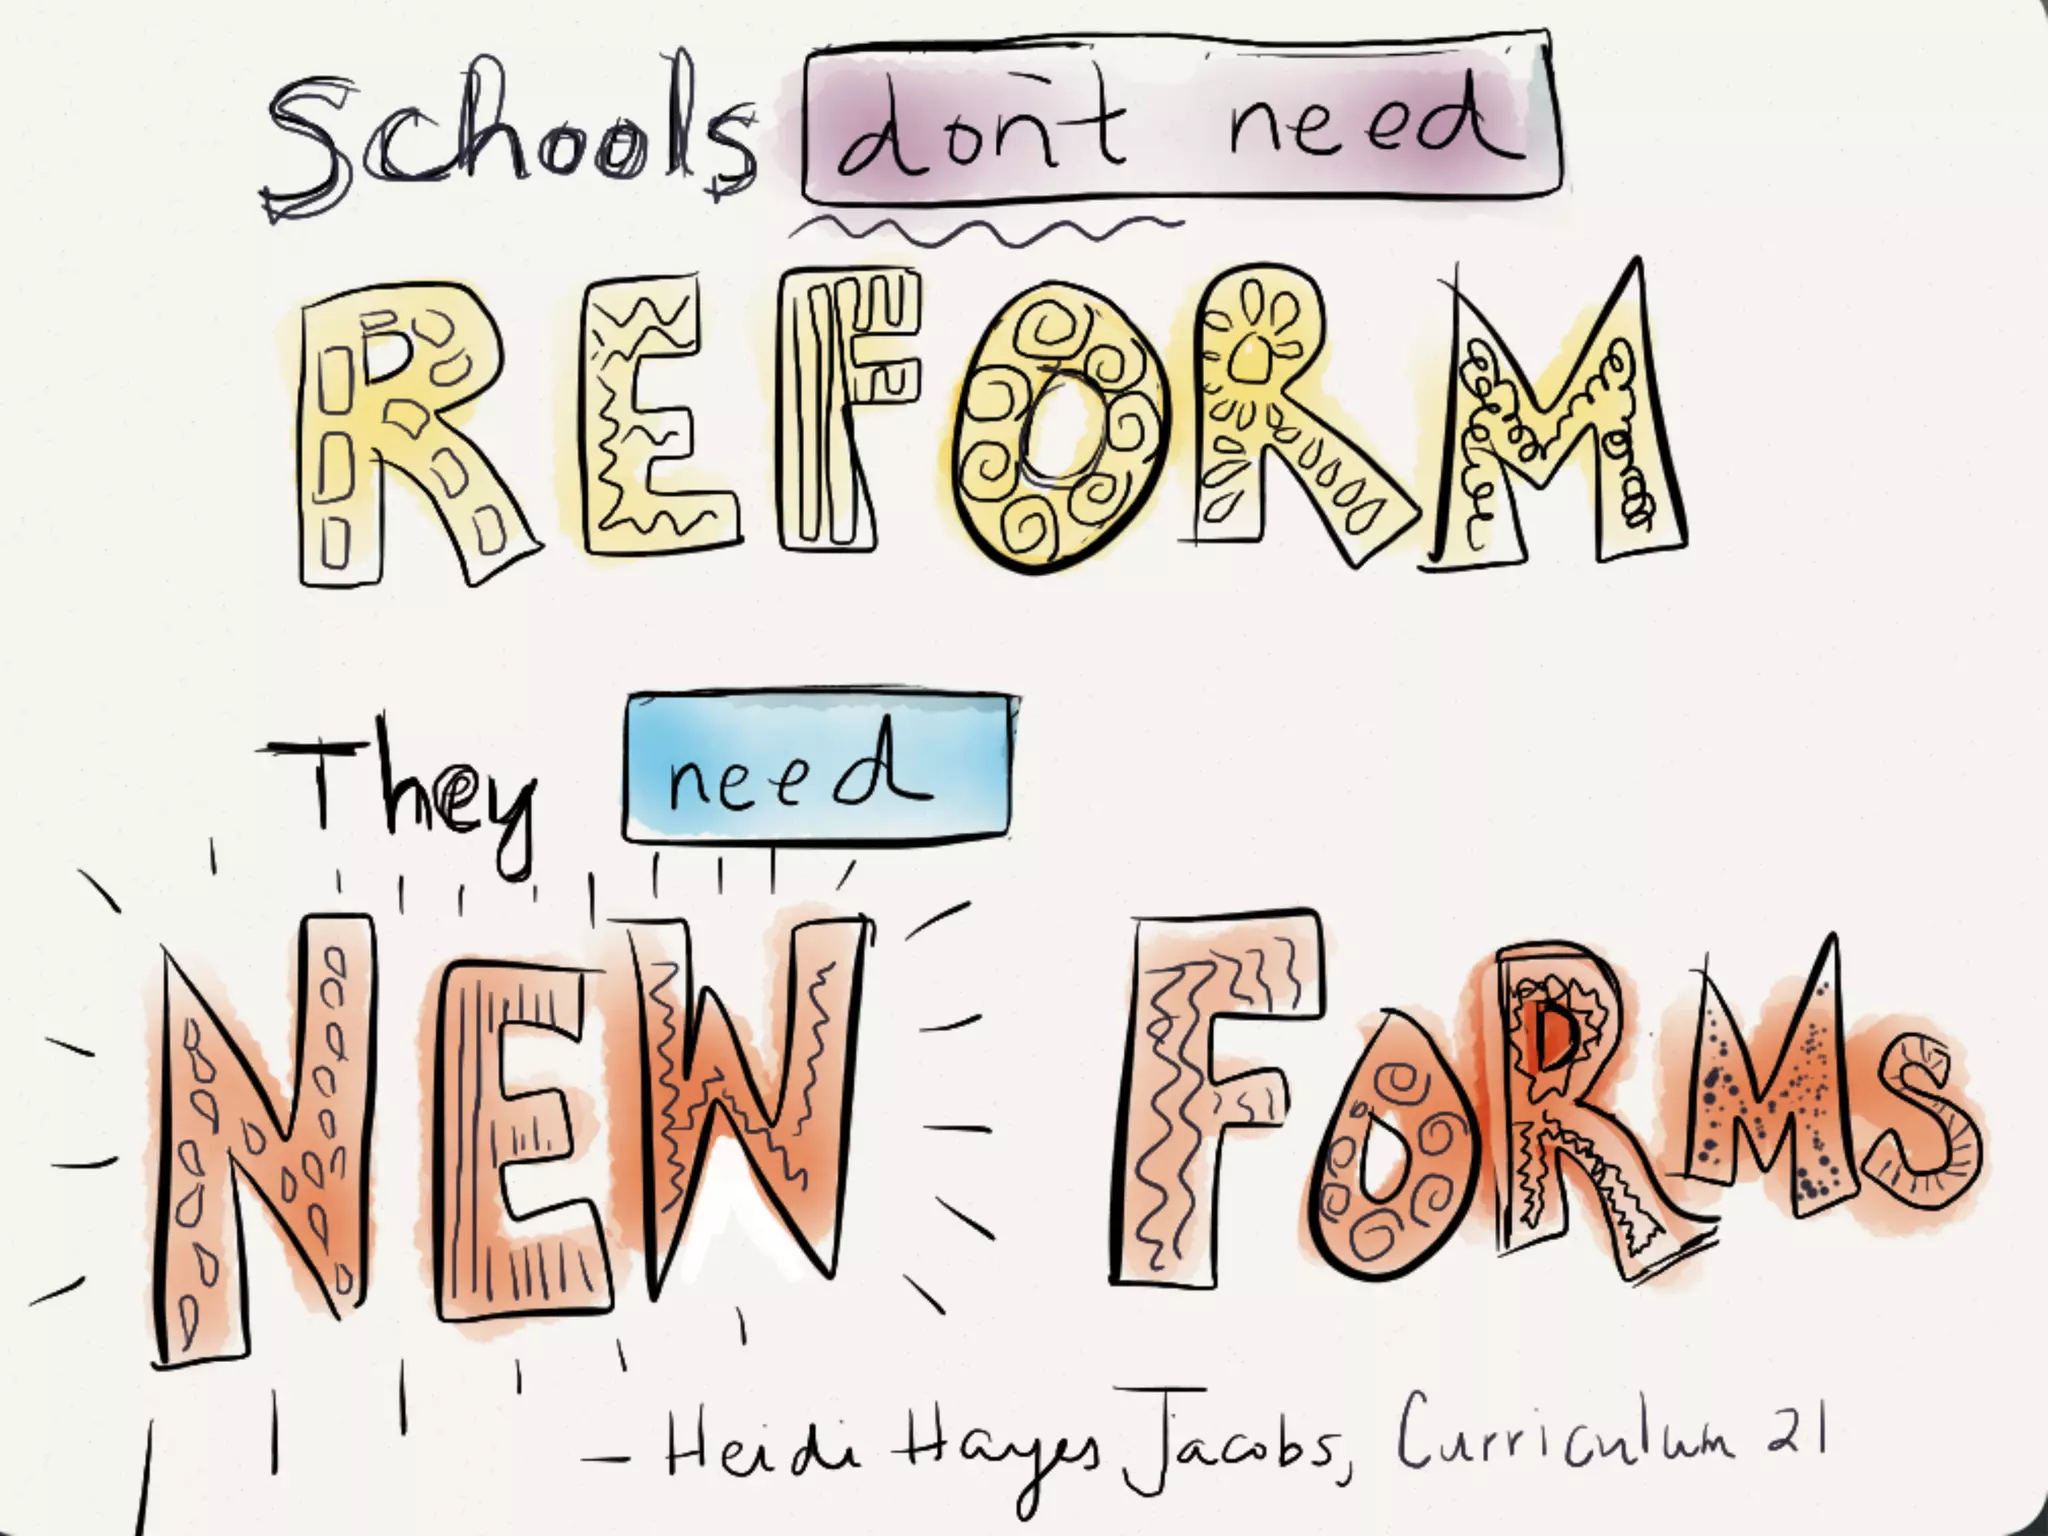 Schools don't need
REFORM
They need
NEW FORMS
- Heidi Hayes Jacobs, Curriculum 21